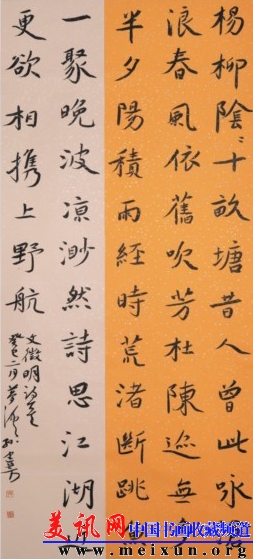 楊柳陰〻十畝塘昔人曾此咏滄
浪春風依舊吹芳杜陳迹無多
半夕陽積雨経時荒渚斷跳
一聚晚波凉渺然詩思江湖
更欲相攜上野航
文徵明詩
癸巳二月
美讯网
中国书画收藏频道
www.meixun.org